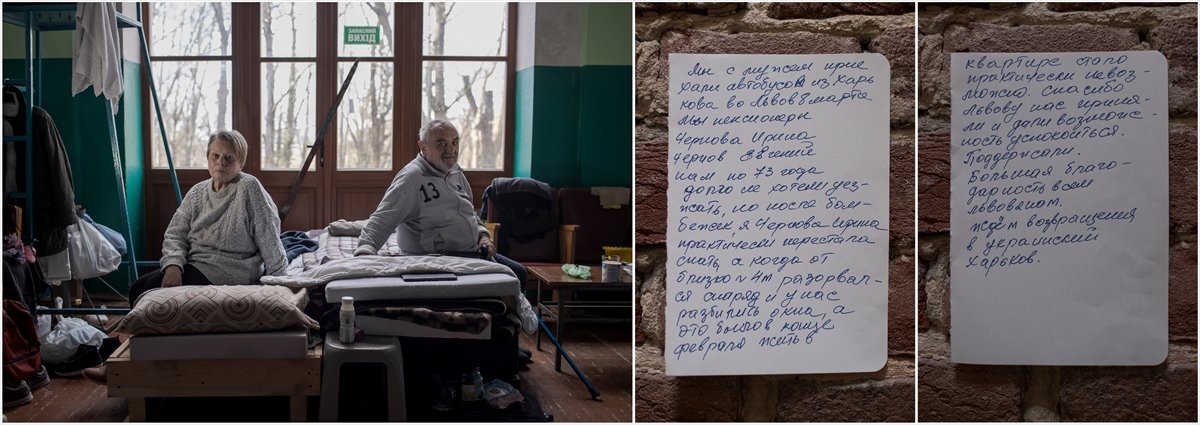 ЗАПАСНИЙ
ВИХІД
13
Мы с мужем прие
хали автобусом из Харь
кова во Львов 8 марта
Мы пенсионеры
Чернова Ирина
Чернов Евгений
нам по 73 года
долго не хотели уез-
жать, но после бом-
бёжек, я Чернова Ирина
практически перестала
спать, а когда от
близко ~ 4м разорвал-
ся снаряд и у нас
разбились окна, а
это было в конце
февраля жить в
квартире стало
практически невоз-
можно. Спасибо
Львову нас приня-
ли и дали возможн-
ность успокоиться.
Поддержали.
Большая благо-
дарность всем
львовянам.
Ждём возвращения
в украинский
Харьков.